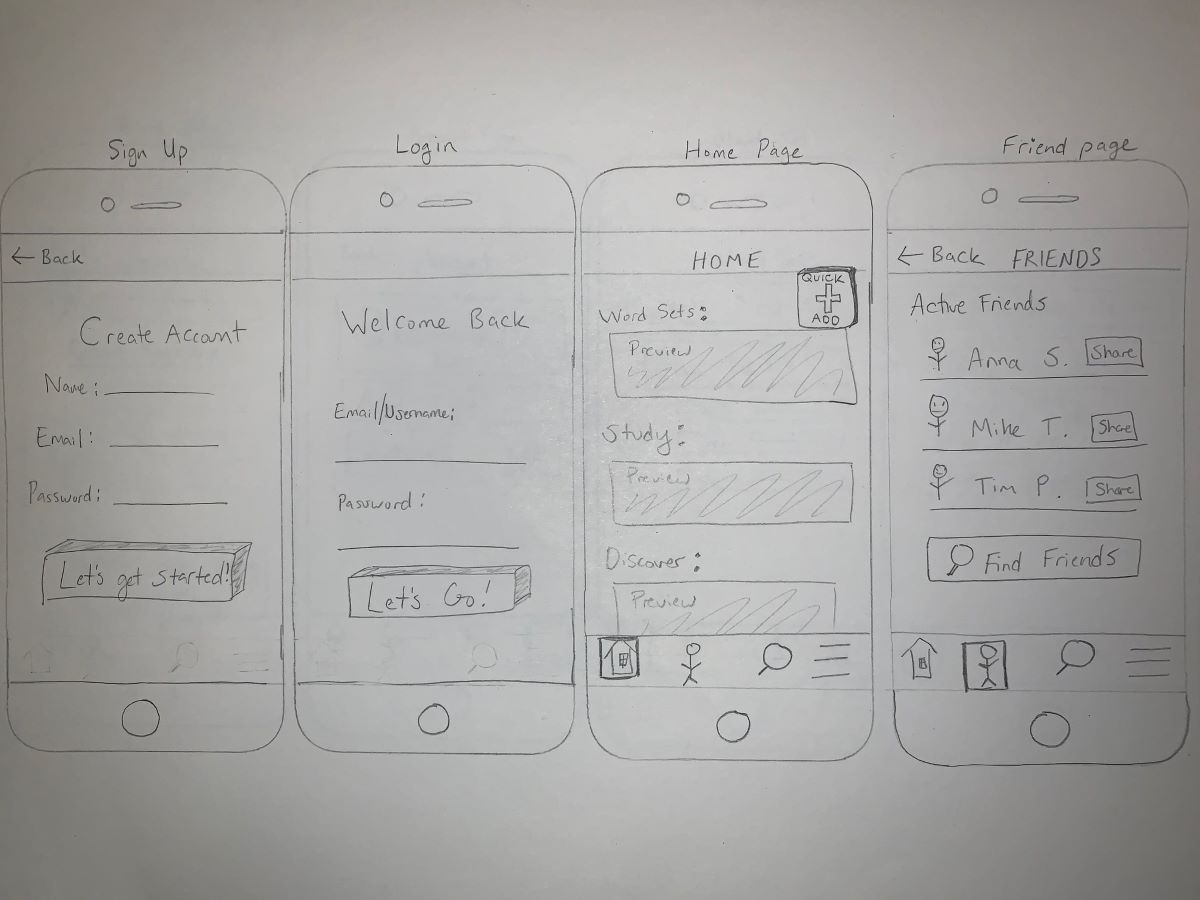 Sign Up
← Back
Create Account
Name:
Email:
Password:
Let's get started!
Login
Welcome Back
Email/Username:
Password:
Let's Go!
Home Page
HOME
QUICK
ADD
Word Sets:
Preview
Study:
Preview
Discover:
Preview
Friend page
← Back FRIENDS
Active Friends
Anna S. Share
Mike T. Share
Tim P. Share
Find Friends